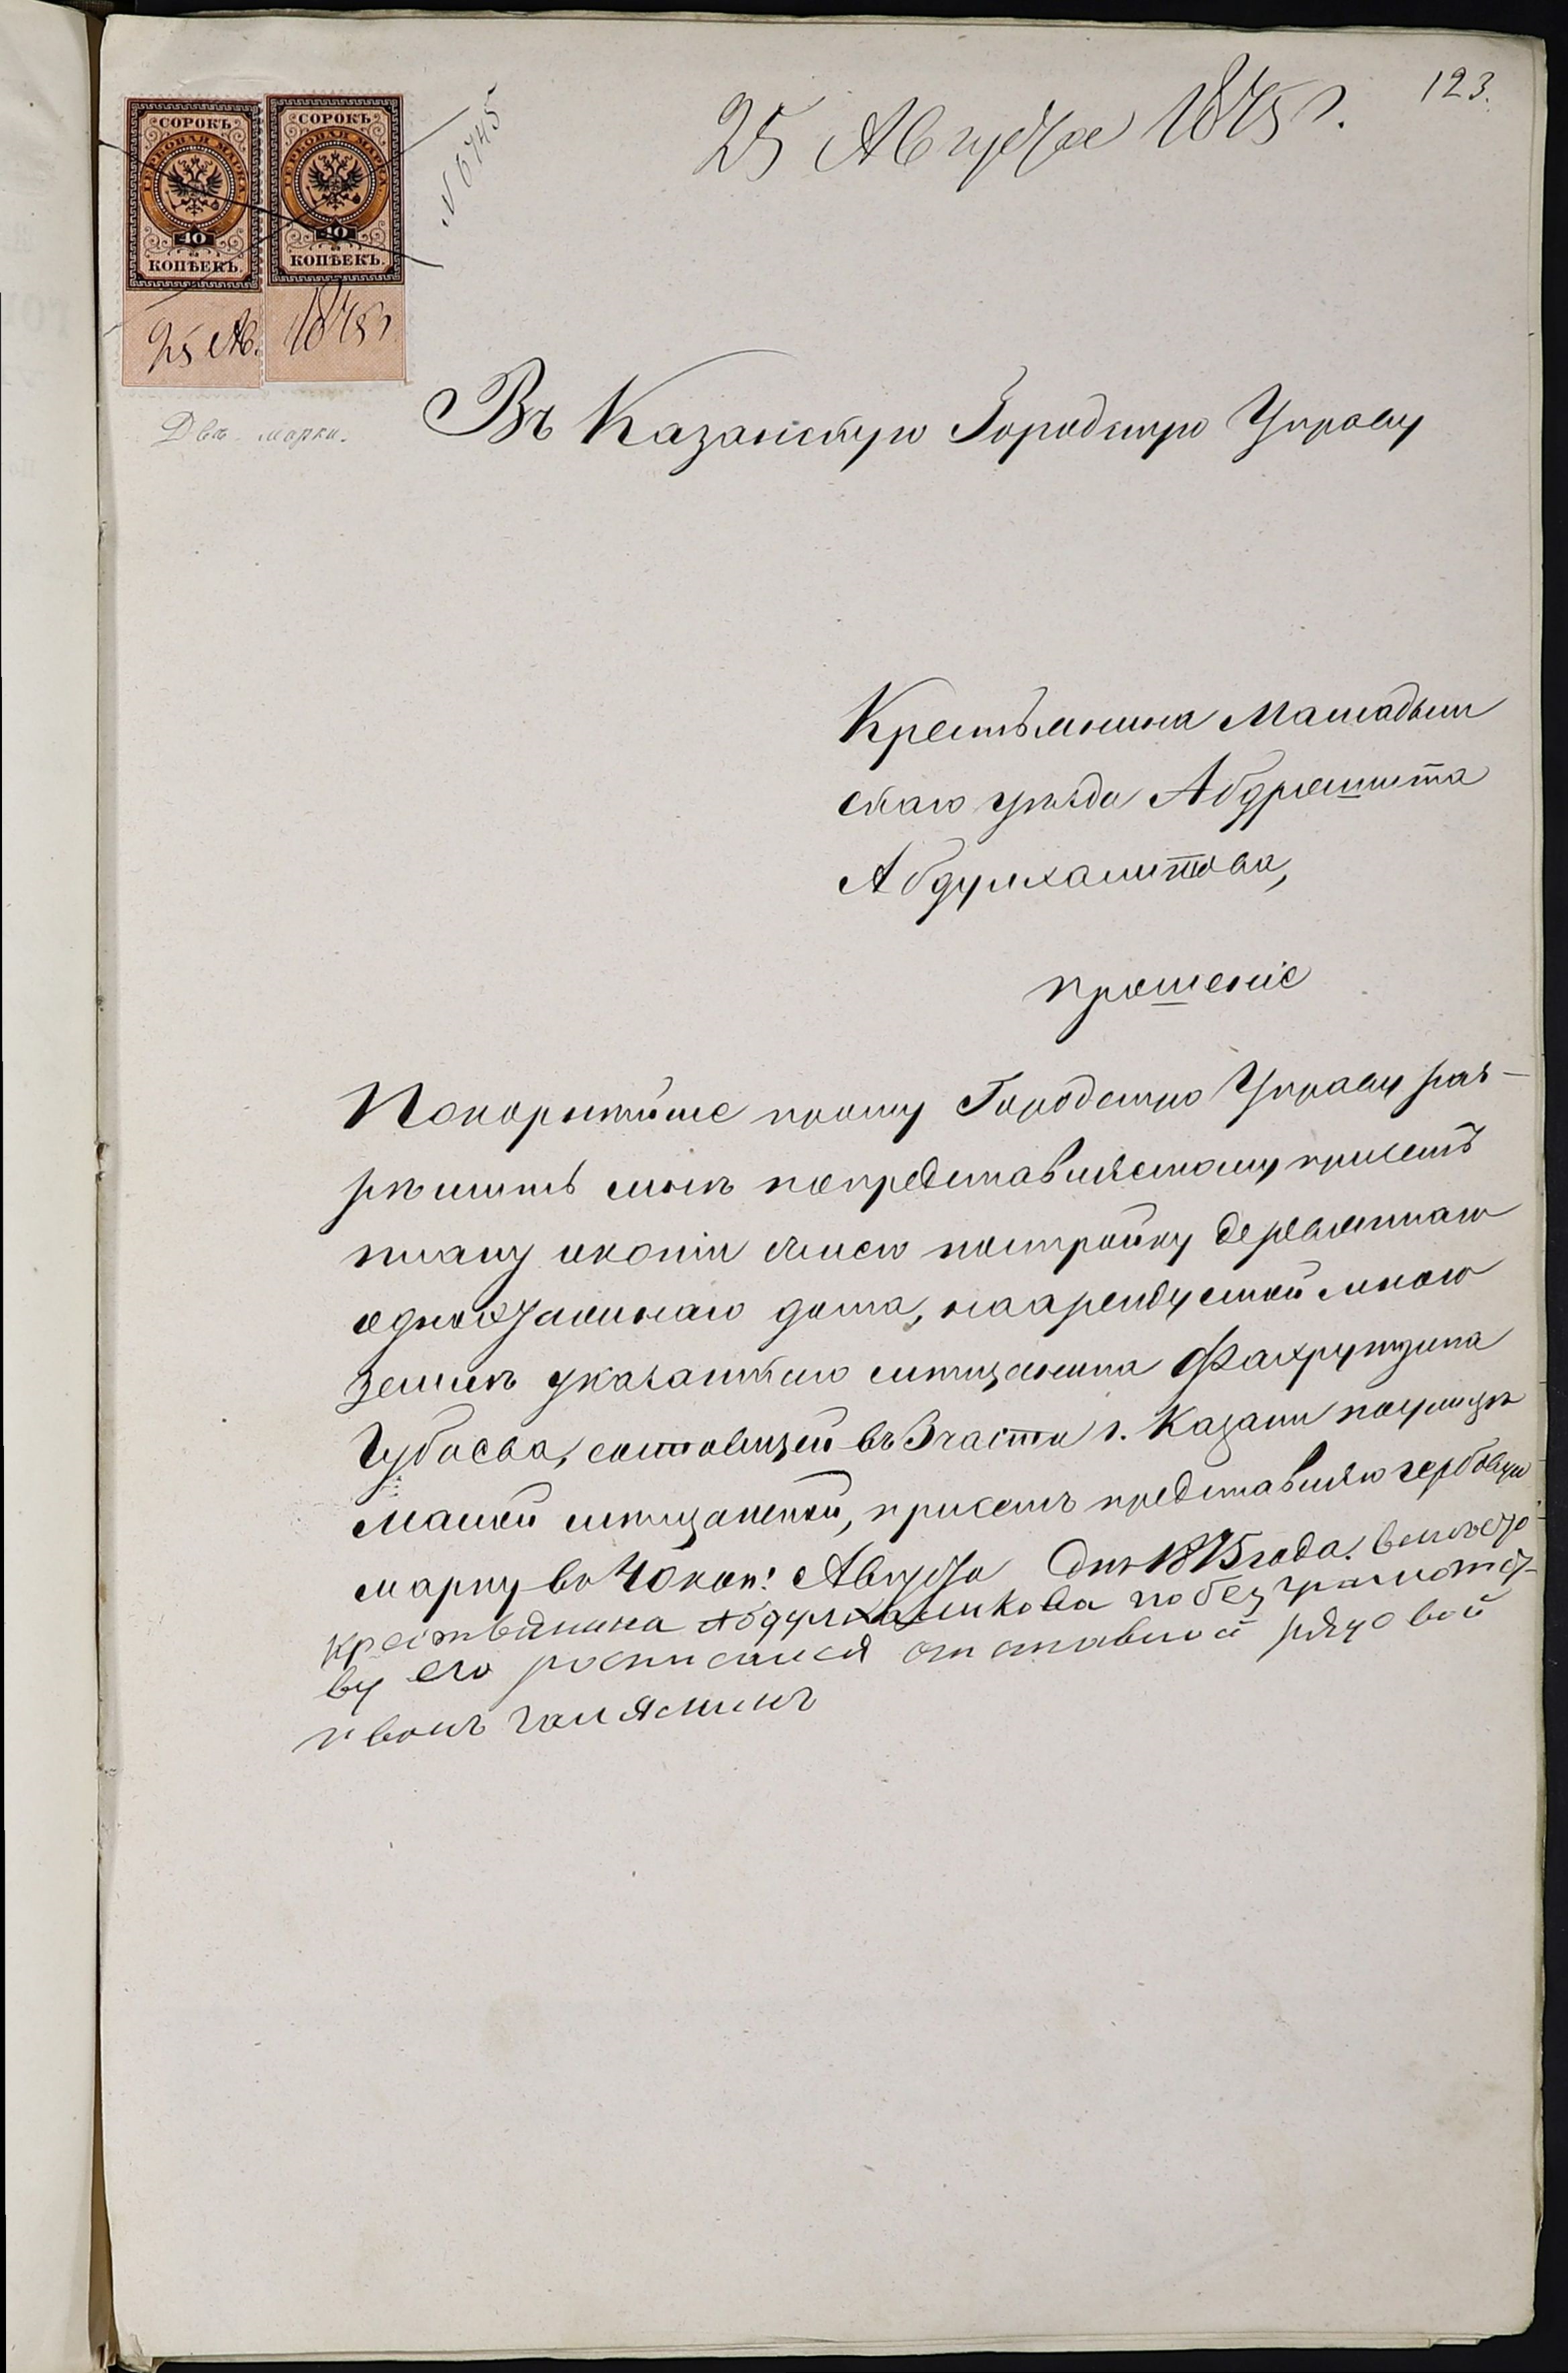 123.
25 Августа 1875 г.
№ 6745
СОРОКЪ СОРОКЪ
ГЕРБОВАЯ МАРКА ГЕРБОВАЯ МАРКА
40 40
КОПѢЕКЪ. КОПѢЕКЪ.
25 Ав. 1875 г
Двѣ марки.
Въ Казанскую Городскую Управу
Крестьянина Мамадыш
скаго уѣзда Абдрешита
Абдулхамитова,
прошеніе
Покорнѣйше прошу Городскую Управу раз-
рѣшить мнѣ по представляемому при семъ
плану и копіи съ него постройку деревяннаго
одноэтажнаго дома, на арендуемой мною
землѣ у казанскаго мѣщанина Фахрутдина
Губаева, состоящей въ 3 части г. Казани по улицѣ
Малой мѣщанской, при семъ представляю гербовую
марку въ 40 коп: Августа дня 1875 года. вмѣсто
крестьянина Абдулхамикова по безграмотст-
ву его росписался отставной рядовой